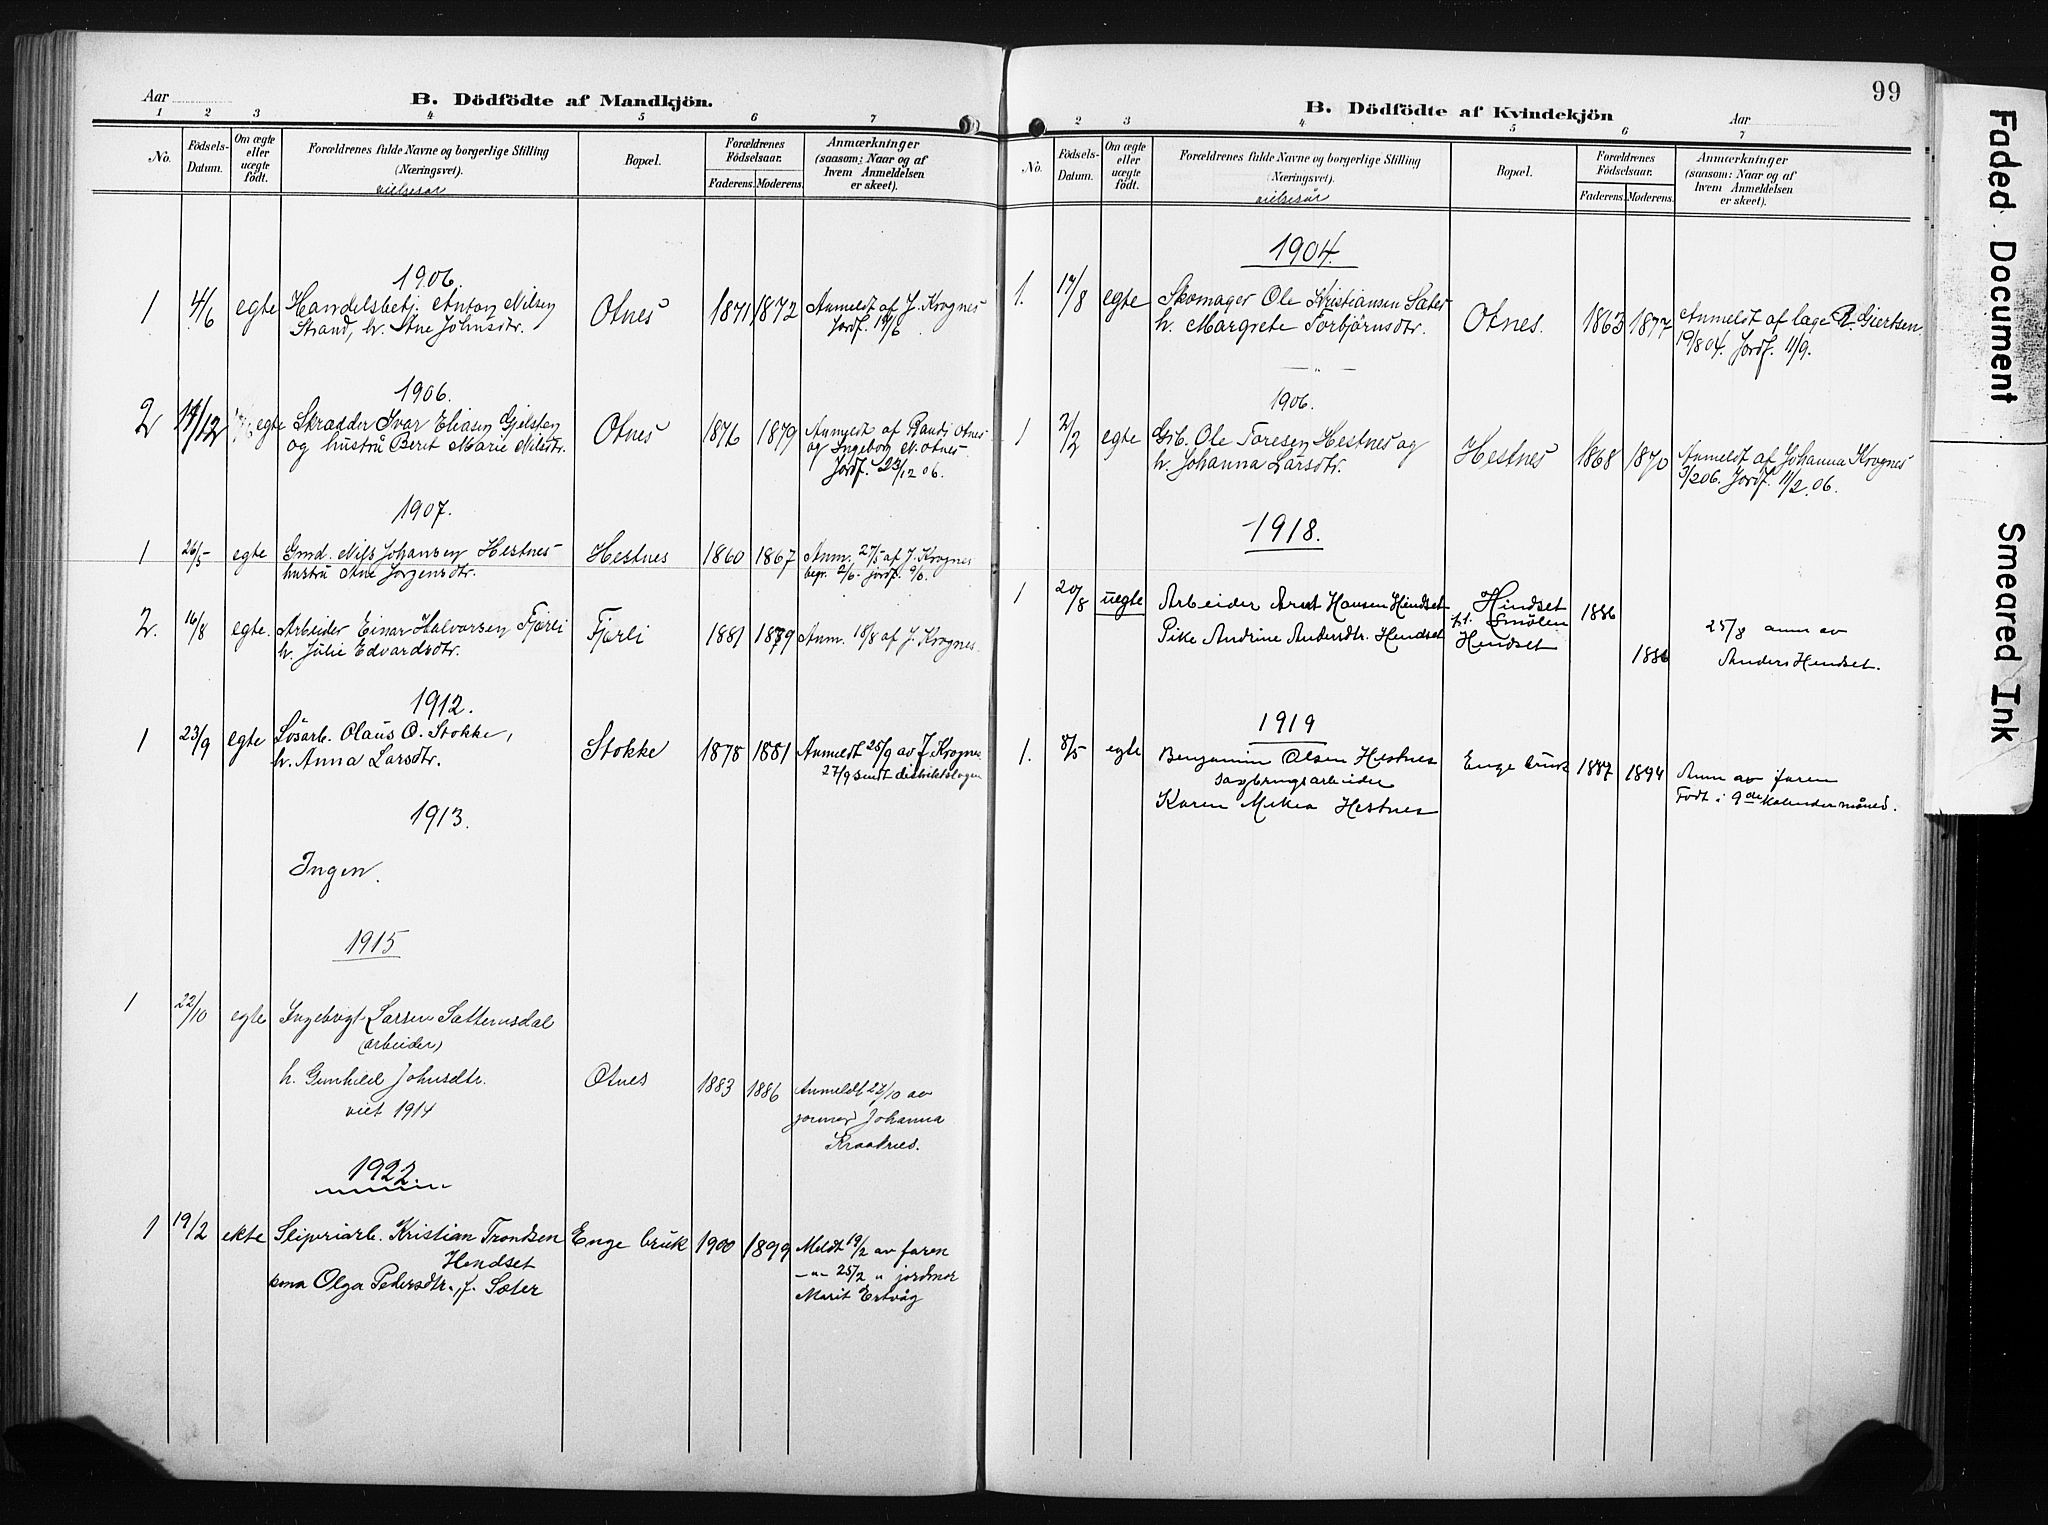 Aar
B. Dödfödte af Mandkjön.
1 2 3 4 5 6 7
No.
Födsels-Datum.
Om ægte eller uægte födt.
Forældrenes fulde Navne og borgerlige Stilling
(Næringsvei).
vielsesår
Bopæl.
Forældrenes Födselsaar.
Faderens. Moderens.
Anmærkninger
(saasom: Naar og af
hvem Anmeldelsen
er skeet).
1906.
1 4/6 egte Handelsbetj. Anton Nilsen Otnes 1871 1872 Anmeldt af J. Krognes
Strand, h. Ane Johnsdtr. Jordf. 19/6
1906.
2 14/12 egte Skrædder Ivar Eliasen Gjelsten Otnes 1876 1879 Anmeldt af Randi Otnes
og hustru Beret Marie Nilsdtr. og Ingebog N. Otnes.
Jordf. 23/12 06.
1907.
1 26/5 egte Gmd. Nils Johansen Hestnes Hestnes 1860 1867 Anm. 27/5 af J. Krognes
hustru Ane Jørgensdtr. begr. 2/6. jordf. 9/6.
2. 16/8 egte. Arbeider Einar Halvorsen Fjørli Fjørli 1881 1879 Anm. 18/8 af J. Krognes.
h. Julie Edvardsdtr.
1912.
1 23/9 egte Løsarb. Olaus O. Stokke, Stokke 1878 1881 Anmeldt 25/9 av J. Krognes
h. Anna Larsdtr. 27/9 sendt distriktslægen
1913.
Ingen.
1915
1 22/10 egte Ingebrigt Larsen Sættemsdal
(arbeider)
h. Gunhild Johnsdtr. Otnes 1883 1886 Anmeldt 27/10 av
viet 1914 jormor Johanna
Kraaknes.
1922.
1 19/2 ekte Sliperiarb. Kristian Trondsen Enge bruk 1900 1899 Meldt 19/2 av faren
Hendset -"- 25/2 " jordmor
kona Olga Pedersdtr., f. Sæter Marit Ertvåg
99
B. Dödfödte af Kvindekjön
Aar
2 3 4 5 6 7
No.
Födsels-Datum.
Om ægte eller uægte födt.
Forældrenes fulde Navne og borgerlige Stilling
(Næringsvei).
vielsesår
Bopæl.
Forældrenes Födselsaar.
Faderens. Moderens.
Anmærkninger
(saasom: Naar og af
hvem Anmeldelsen
er skeet).
1904.
1. 17/8 egte Skomager Ole Kristiansen Sæter Otnes. 1863 1877 Anmeldt af læge R. Giertsen
h. Margrete Torbjørnsdtr. 19/8 04. Jordf. 11/9.
1906.
1 2/2 egte Grb. Ole Toresen Hestnes og Hestnes 1868 1870 Anmeldt af Johanna Krognes
h. Johanna Larsdtr. 3/2 06. Jordf. 11/2 06.
1918.
1 20/8 uegte Arbeider Arnt Hansen Hindset Hindset 1886
p.t. Smølen
Pike Andrine Andersdtr. Hendset Hendset 1886 25/8 anm av
Anders Hendset.
1919
1. 8/5 egte Benjamin Olsen Hestnes Enge bruk 1887 1894 Anm av faren
sagbrugsarbeider Født i 9de kalendermåned.
Karen Mekea Hestnes
Faded Document
Smeared Ink